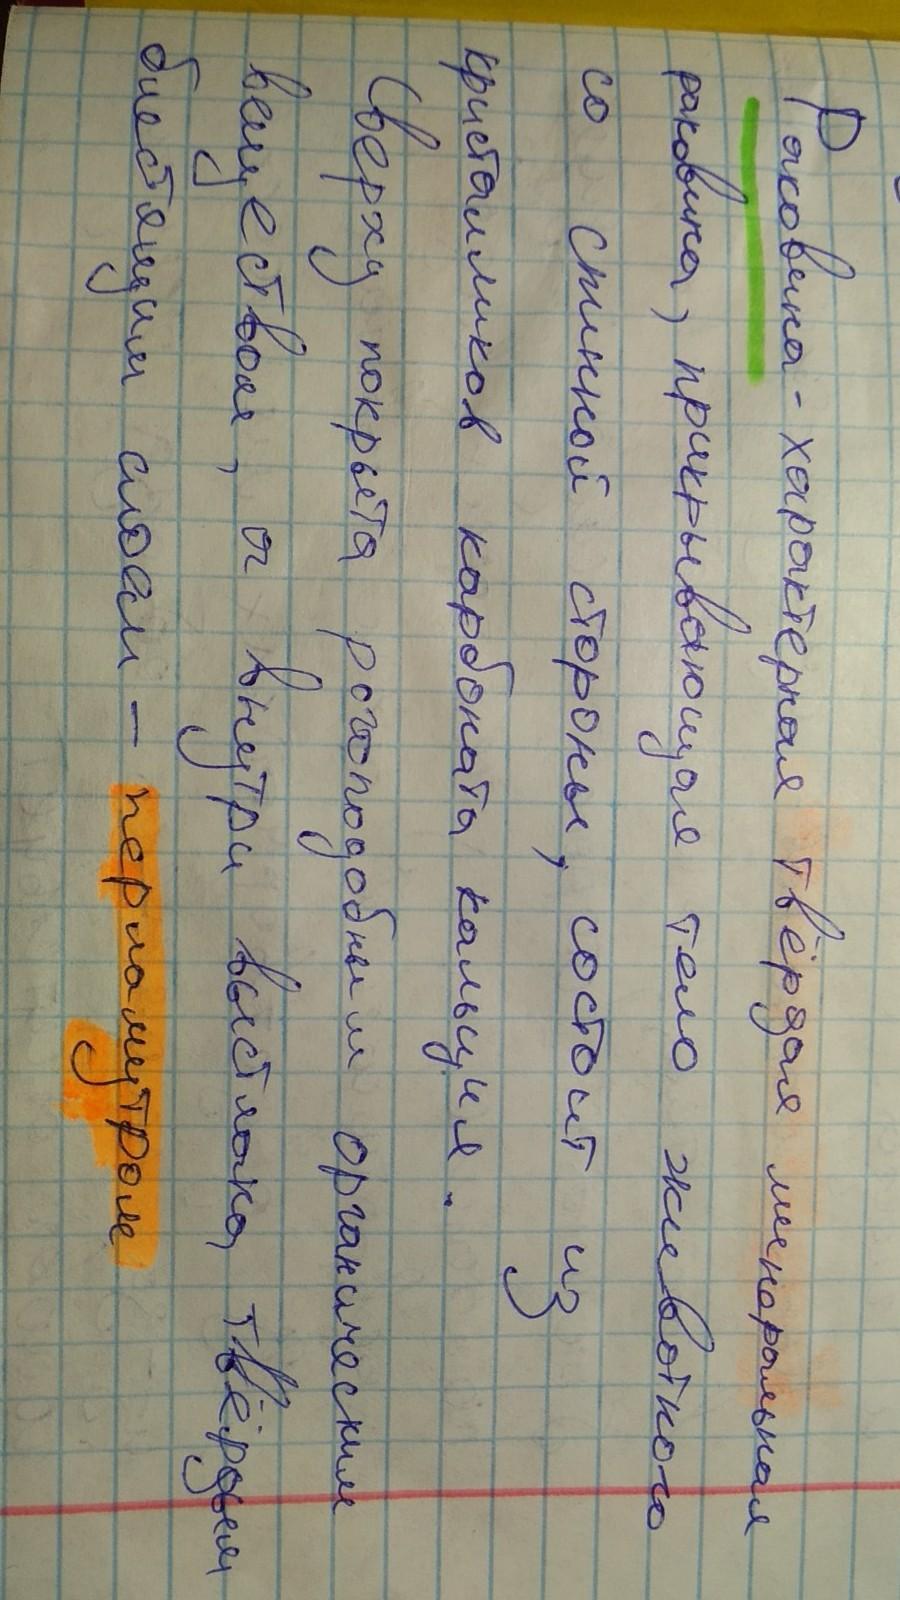 Раковина - характерная твёрдая минеральная
раковина, прикрывающая тело животного
со спинной стороны, состоит из
кристалликов карбоната кальция.
Сверху покрыта рогоподобным органическим
веществом, а внутри выстлана твёрдым
блестящим слоем - перламутром